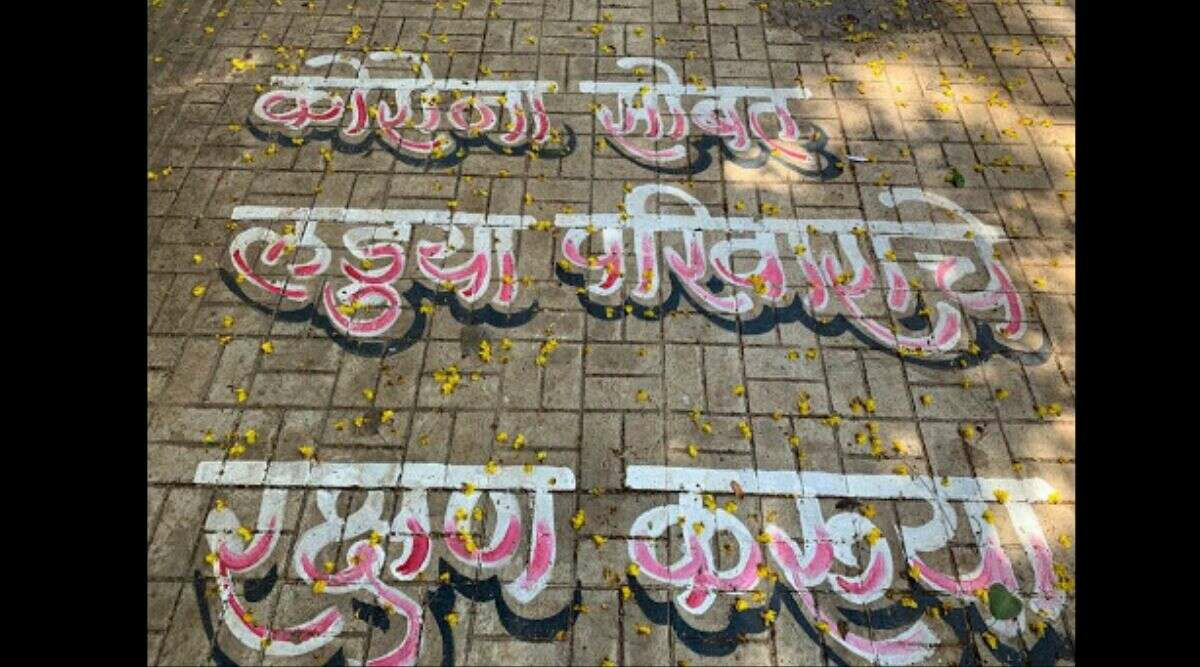 कोरोना सोबत
लढुया परिवाराचे
रक्षण करूया